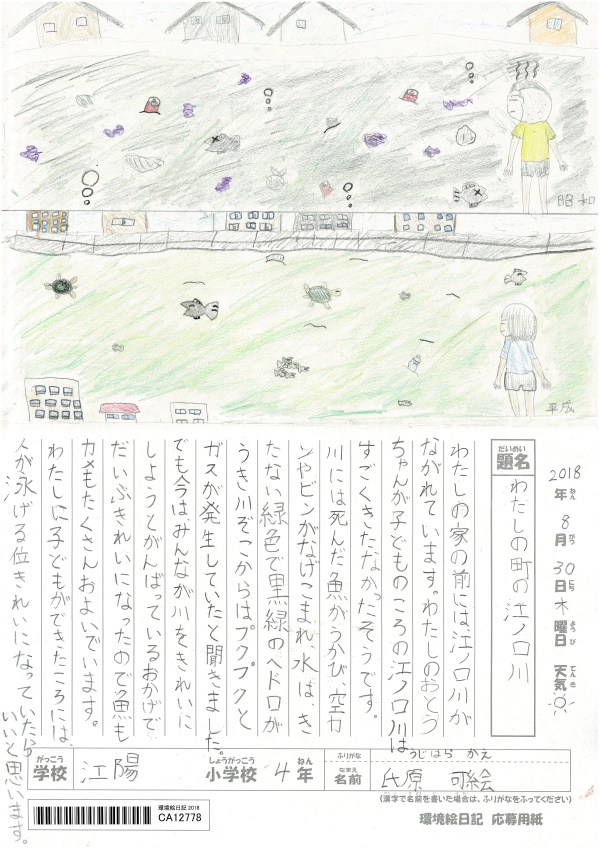 昭和
平成
2018年ねん 8月がつ 30日にち 木曜日ようび 天気てんき
題名だいめい
わたしの町の江ノ口川
わたしの家の前には江ノ口川が
ながれています。わたしのおとう
ちゃんが子どものころの江ノ口川は
すごくきたなかったそうです。
川には死んだ魚がうかび、空カ
ンやビンがなげこまれ、水は、き
たない緑色で黒緑のヘドロが
うき川ぞこからはプクプクと
ガスが発生していたと聞きました。
でも今はみんなが川をきれいに
しようとがんばっているおかげで
だいぶきれいになったので魚も
カメもたくさんおよいでいます。
わたしに子どもができたころには、
人が泳げる位きれいになっていたら
いいと思います。
学校がっこう 江陽 小学校しょうがっこう 4年ねん
ふりがな うじはら かえ
名前なまえ 氏原 可絵
(漢字で名前を書いた場合は、ふりがなをふってください)
環境絵日記 2018
CA12778
環境絵日記 応募用紙